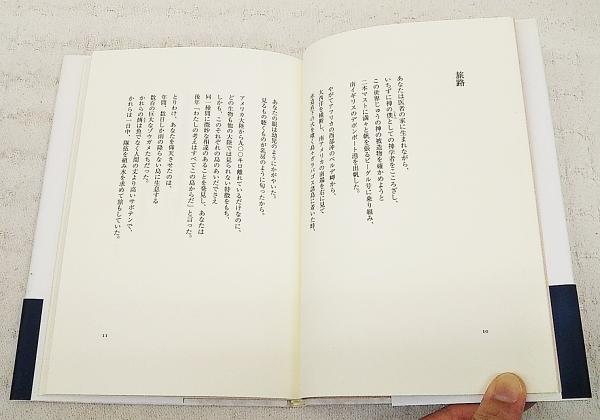 旅路
あなたは医者の家に生まれながら、
いちずに神の僕としての神学者をこころざし、
この世界じゅうの神の被造物を確かめようと
二本マストに満々と帆を張るビーグル号に乗り組み、
南イギリスのデボンポート港を出帆した。
やがてアフリカの西部沖のベルデ岬から、
大西洋を横断し、南アメリカの南端を右に見て
10
あなたの眼は幼児のようにかがやいた。
見るもの聴くものが乳房のように匂ったから。
アメリカ大陸から九〇〇キロ離れているだけなのに、
どの生物も他の大陸では見られない特徴をもち、
しかも、このそれぞれの島のあいだでさえ
同一種間に微妙な相違のあることを発見し、あなたは
後年「わたしの考えはすべてこの島からだ」と言った。
とりわけ、あなたを驚天させたのは、
年間、数日しか雨の降らない島に生息する
数百の巨大なゾウガメたちだった。
かれらの餌は魚でなく人間の丈より高いサボテンで、
かれらは一日中、隊伍を組み水を求めて旅もしていた。
11